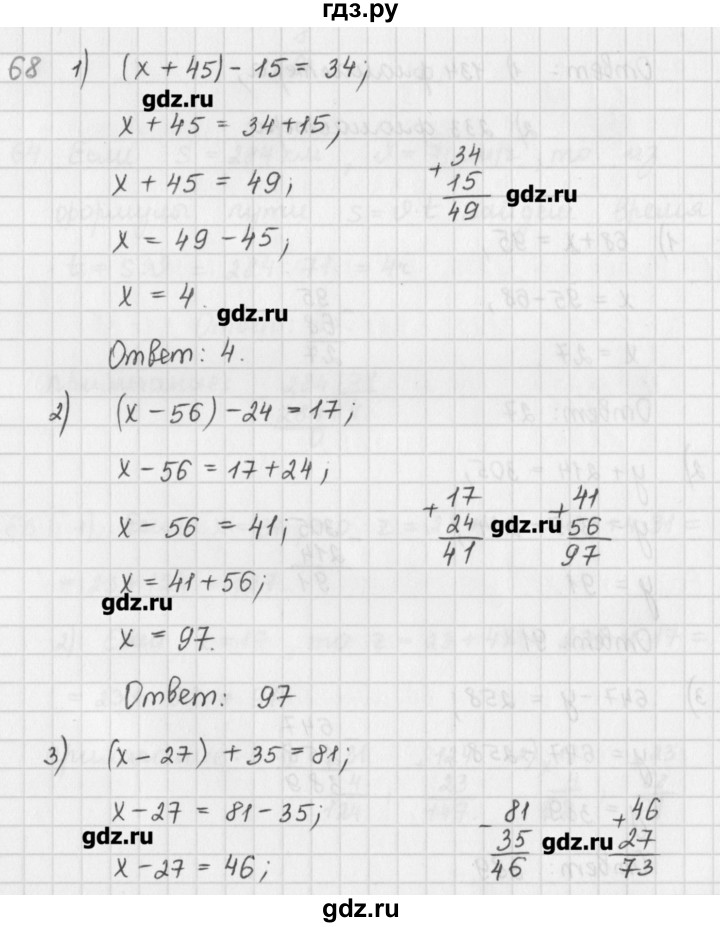 гдз.ру
68 1) (x + 45) - 15 = 34;
gdz.ru
x + 45 = 34 + 15;
x + 45 = 49;
+ 34
15
49
gdz.ru
x = 49 - 45;
x = 4.
gdz.ru
Ответ: 4.
2) (x - 56) - 24 = 17;
x - 56 = 17 + 24;
x - 56 = 41;
+ 17
24
41
gdz.ru
+ 41
56
97
x = 41 + 56;
gdz.ru
x = 97.
Ответ: 97
3) (x - 27) + 35 = 81;
x - 27 = 81 - 35;
gdz.ru
x - 27 = 46;
- 81
35
46
gdz.ru
+ 46
27
73
gdz.ru